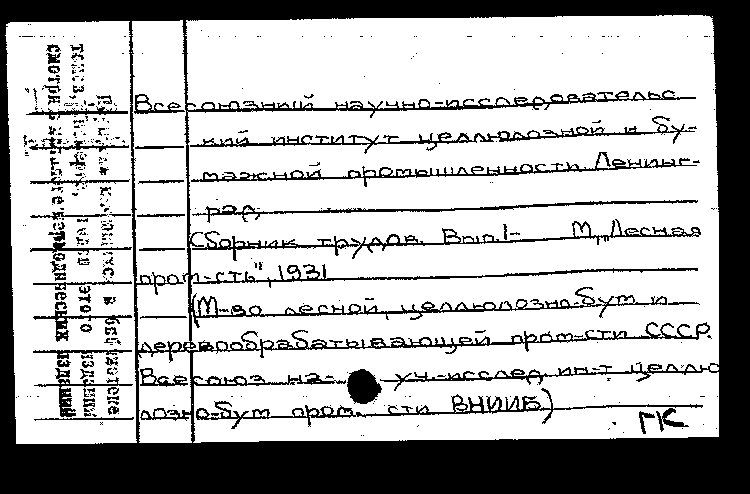 Всесоюзный научно-исследовательс
кий институт целлюлозной и бу-
мажной промышленности Ленинг-
рад.
Сборник трудов. Вып.1- М., „Лесная
пром-сть", 1931
(М-во лесной, целлюлозно-бум и
деревообрабатывающей пром-сти СССР.
Всесоюз на- уч.-исслед. ин-т целлю
лозно-бум пром. сти ВНИИБ)
ГК
в библиотеке
тома, номера, годы этого издания
смотри в каталоге периодических изданий